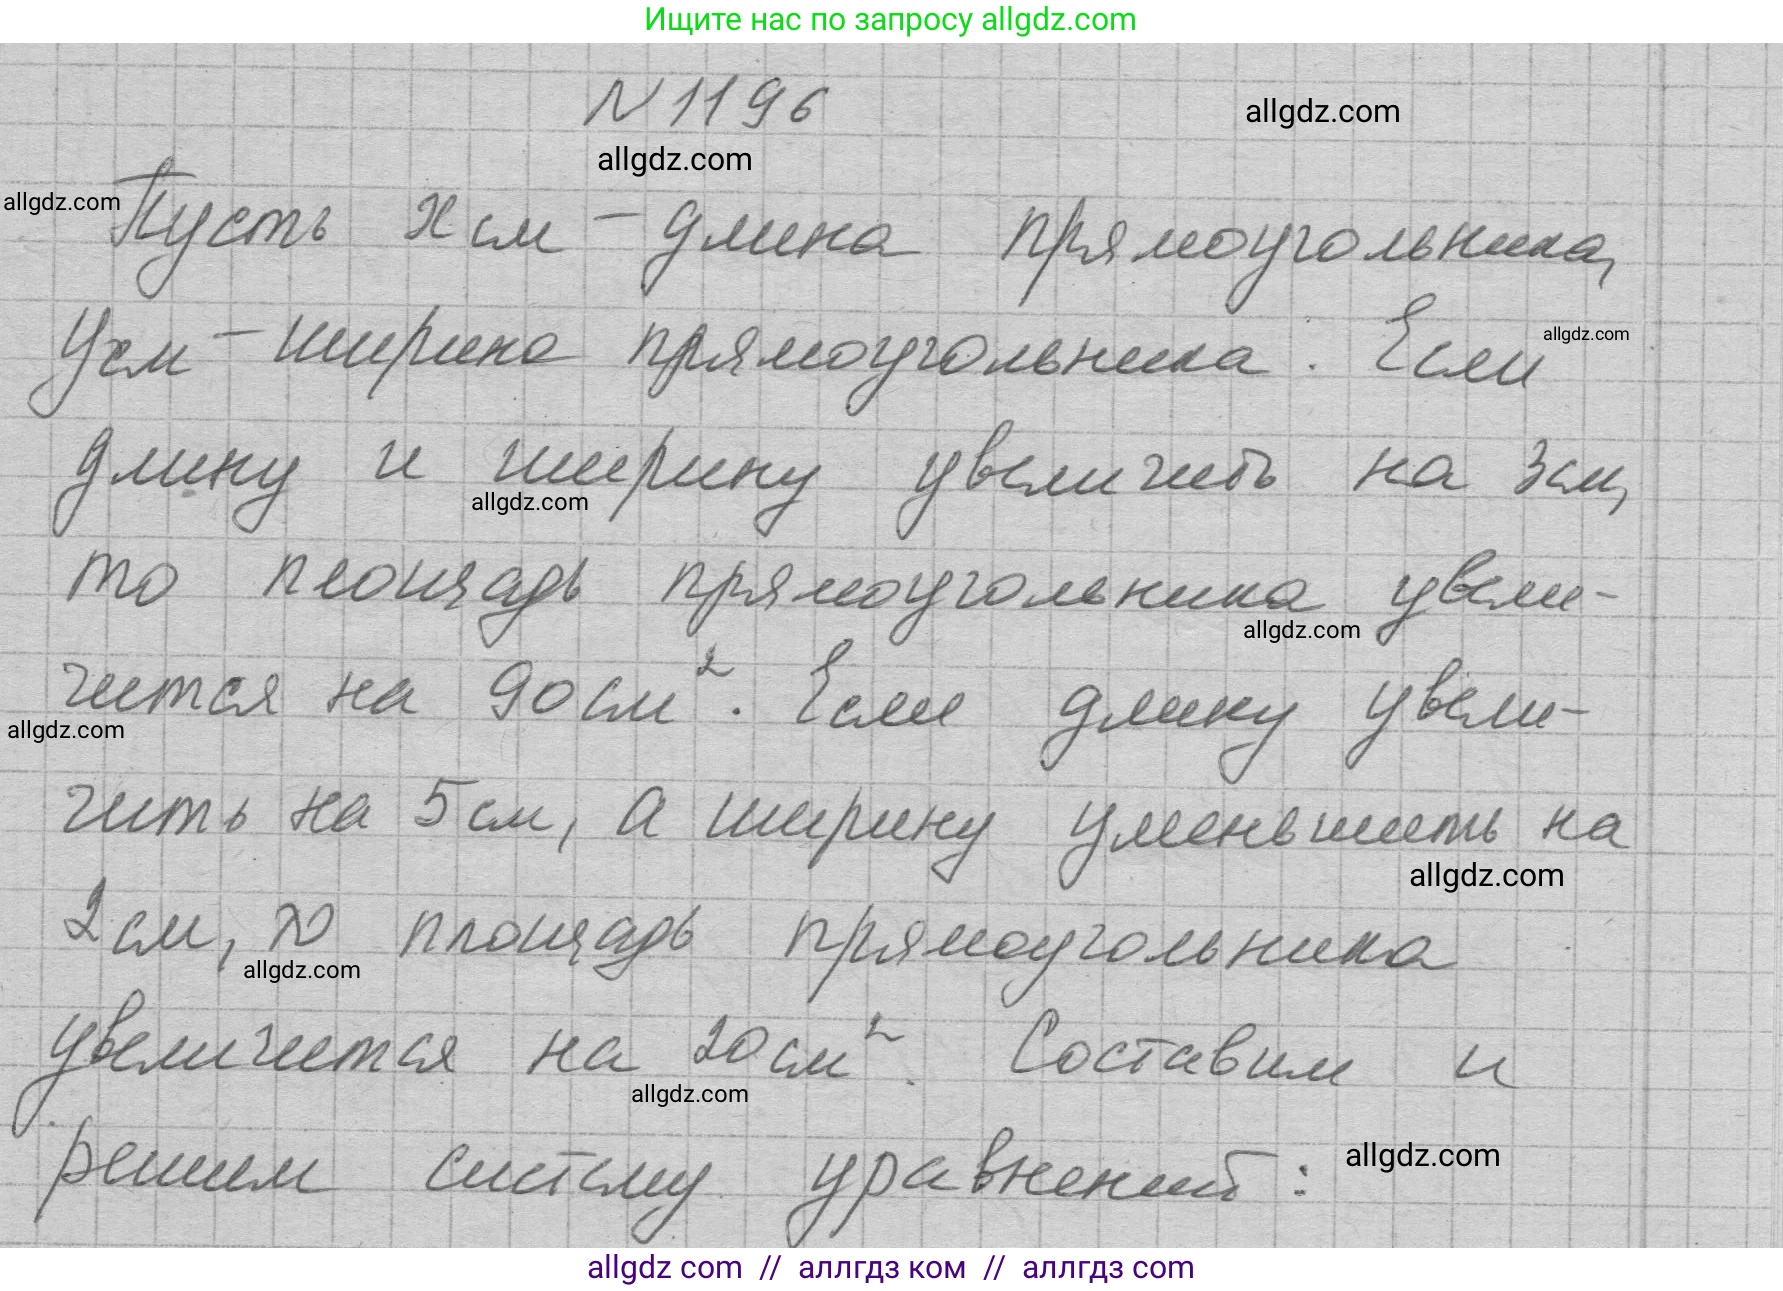 Ищите нас по запросу allgdz.com
N 1196
allgdz.com
allgdz.com
allgdz.com
Пусть x см - длина прямоугольника,
y см - ширина прямоугольника. Если
allgdz.com
длину и ширину увеличить на 3 см,
allgdz.com
то площадь прямоугольника увели-
allgdz.com
чится на 90 см². Если длину увели-
allgdz.com
чить на 5 см, а ширину уменьшить на
allgdz.com
2 см, то площадь прямоугольника
allgdz.com
увеличется на 20 см². Составим и
allgdz.com
решим систему уравнений:
allgdz.com
allgdz com // аллгдз ком // аллгдз com